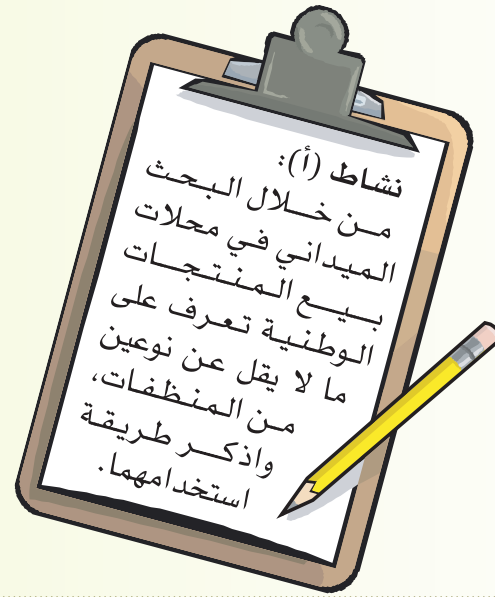 نشاط (أ):
من خلال البحث
الميداني في محلات
بيع المنتجات
الوطنية تعرف على
ما لا يقل عن نوعين
من المنظفات،
واذكر طريقة
استخدامهما.